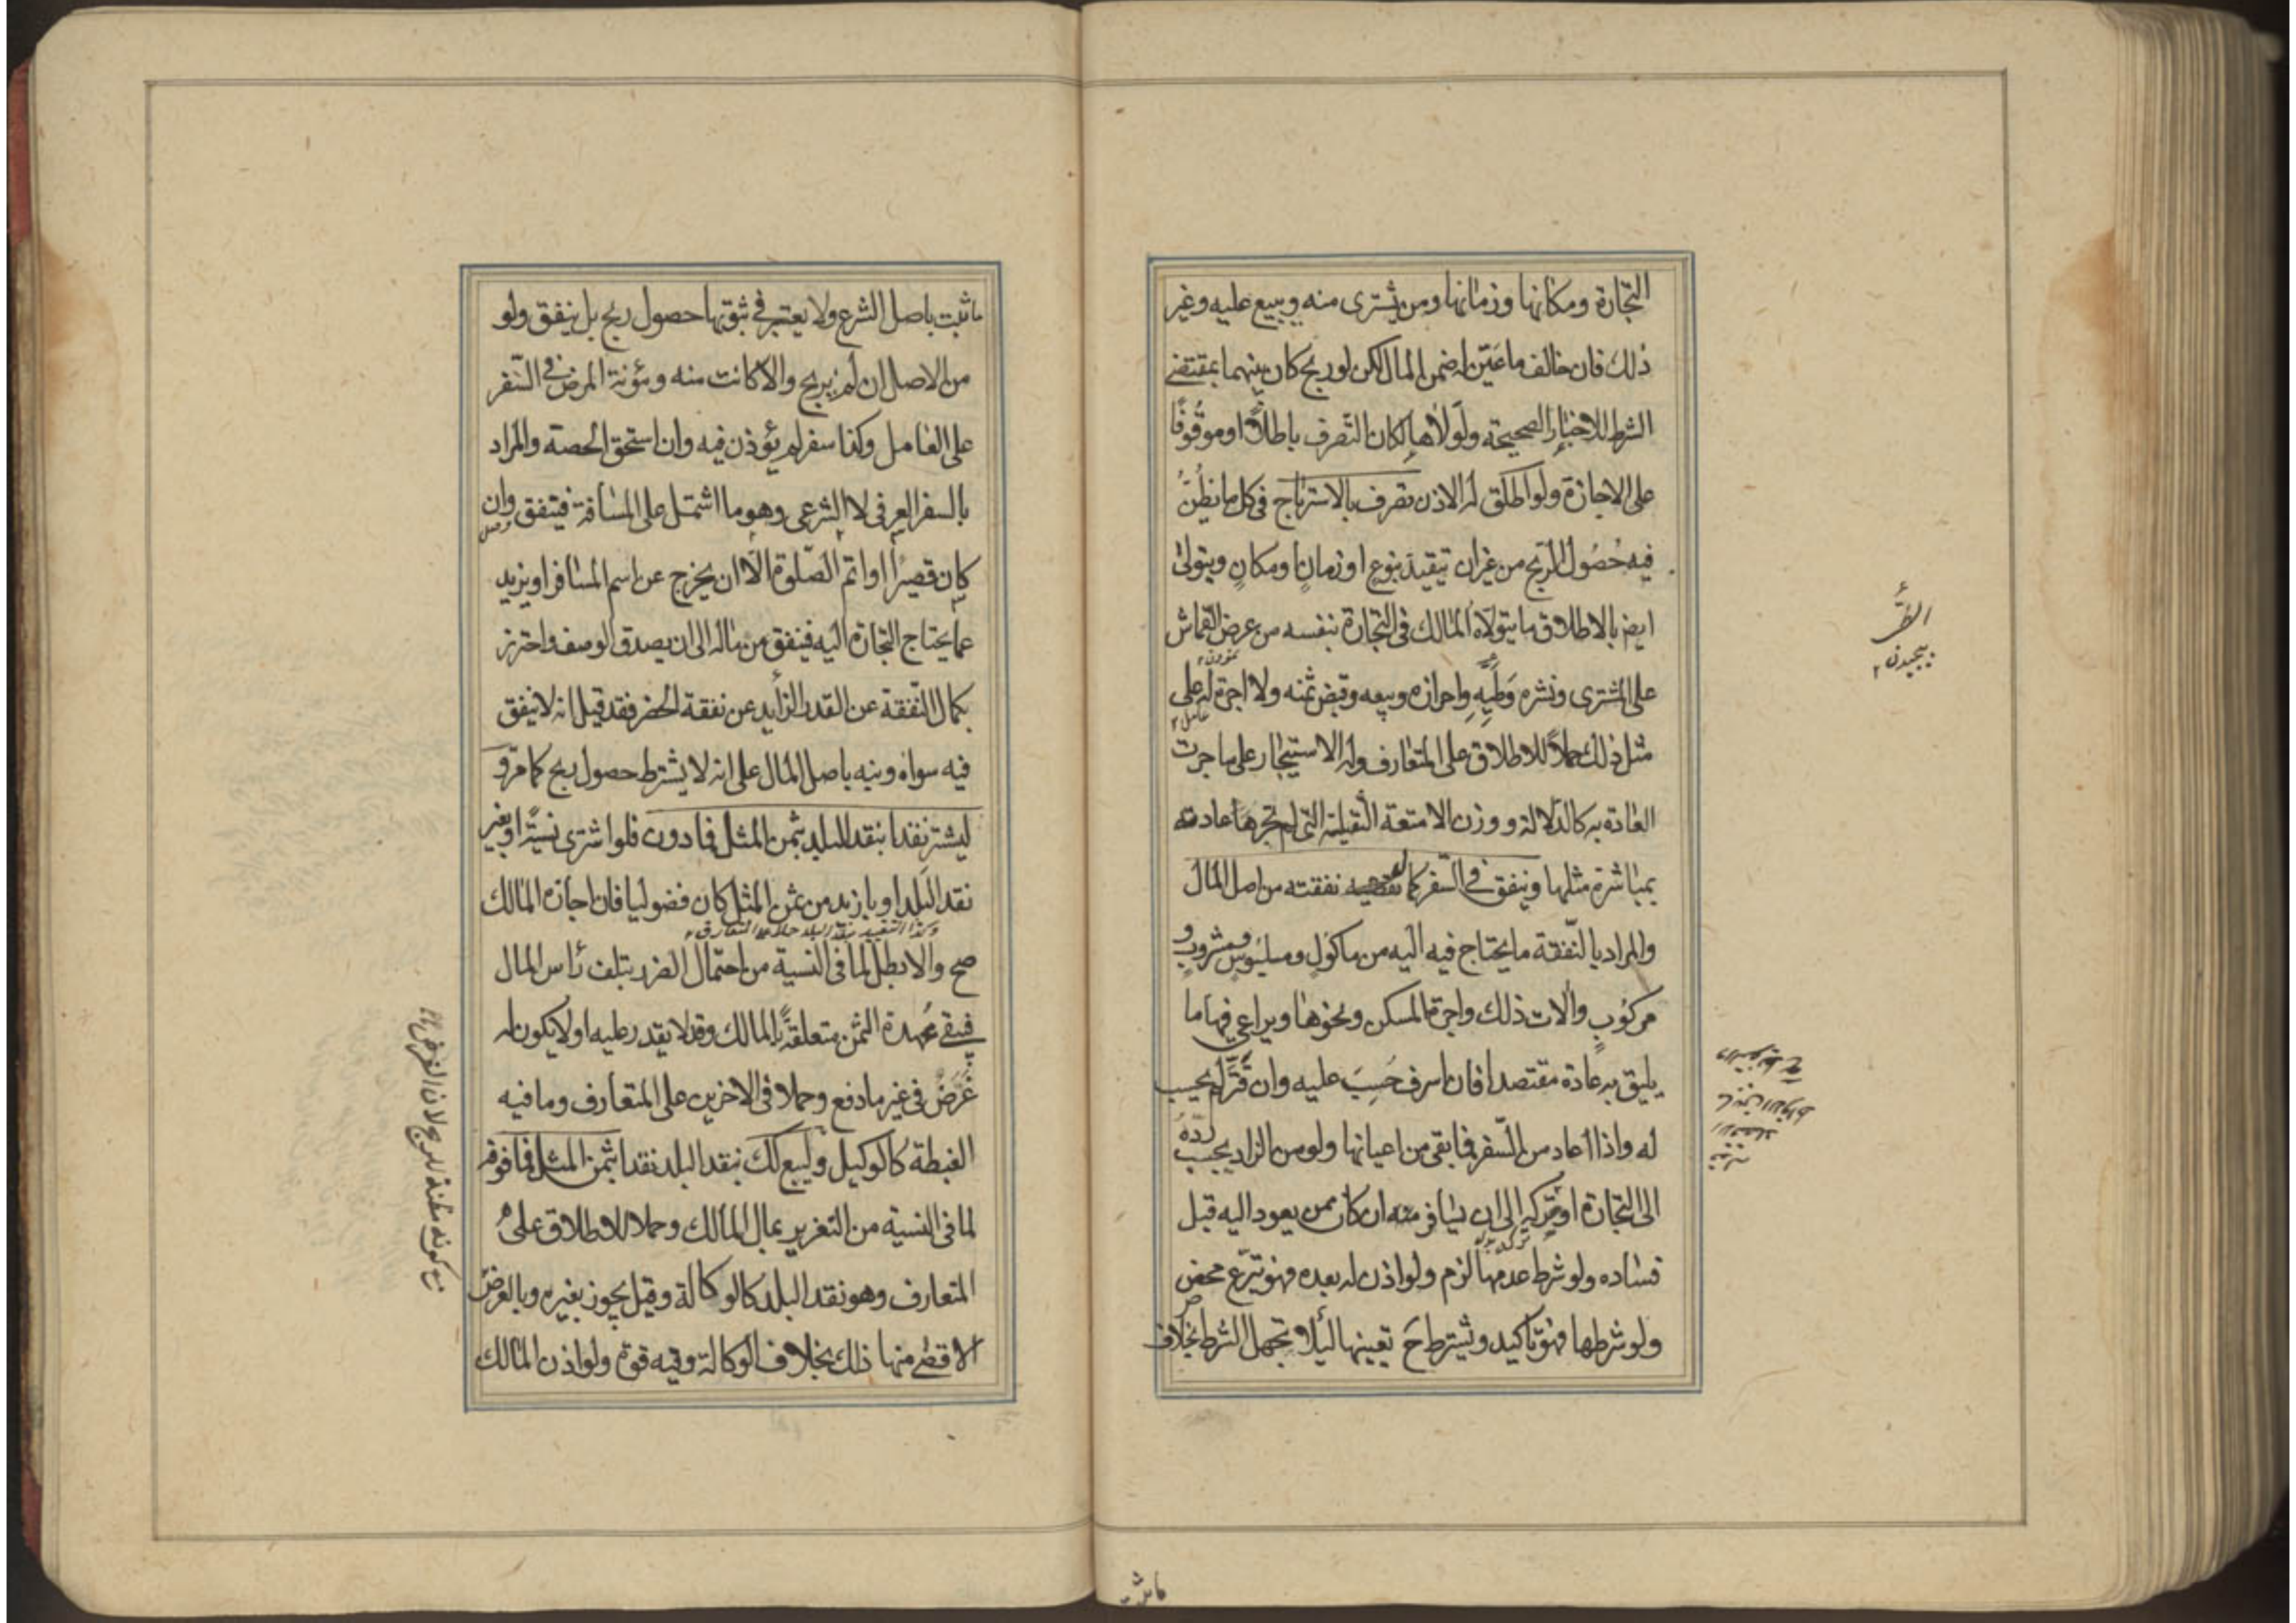 التجارة ومكانها وزمانها ومن يشترى منه ويبيع عليه وغير
ذلك فان خالف ما عين له ضمن المال لكن لو ربح كان بينهما بمقتضى
الشرط للاخبار الصحيحة ولولاها لكان التصرف باطلا او موقوفا
على الاجازة ولو اطلق له الاذن تصرف بالاسترباح فى كل ما يظن
فيه حصول الربح من غير ان يتقيد بنوع او زمان او مكان ويتولى
ايض بالاطلاق ما يتولاه المالك فى التجارة بنفسه من عرض القماش
على المشترى ونشره وطيه واحرازه وبيعه وقبض ثمنه ولا اجرة له على
مثل ذلك حملا للاطلاق على المتعارف وله الاستيجار على ما جرت
العادة به كالدلالة ووزن الامتعة الثقيلة التى لم تجر عادته
بمباشرة مثلها وينفق فى السفر كمال نفقته من اصل المال
والمراد بالنفقة ما يحتاج فيه اليه من ماكول وملبوس ومشروب و
مركوب والات ذلك واجرة المسكن ونحوها ويراعى فيها ما
يليق به عادة مقتصدا فان اسرف حسب عليه وان قتر لم يحسب
له واذا عاد من السفر فما بقى من اعيانها ولو من الزاد يجب رده
الى التجارة او تركه الى ان يسافر ان كان ممن يعود اليه قبل
فساده ولو شرط عدمها لزم ولو اذن له بعده فهو تبرع محض
ولو شرطها فهو تاكيد ويشترط ح تعيينها ليلا تجهل الشرط بخلاف
النشر
پیچیدن
عامل
ما ثبت
ما ثبت باصل الشرع ولا يعتبر فى ثبوتها حصول ربح بل ينفق ولو
من الاصل ان لم يربح والا كانت منه ومؤنة المرض فى السفر
على العامل وكذا سفر لم يؤذن فيه وان استحق الحصة والمراد
بالسفر العرفى لا الشرعى وهو ما اشتمل على المسافة فينفق وان
كان قصيرا او اتم الصلوة الا ان يخرج عن اسم المسافر او يزيد
عما يحتاج التجارة اليه فينفق من ماله الى ان يصدق الوصف واحترز
بكمال النفقة عن القدر الزايد عن نفقة الحضر فقد قيل انه لا ينفق
فيه سواه ونبه باصل المال على انه لا يشترط حصول ربح كما مر و
ليشتر نقدا بنقد البلد بثمن المثل فما دون فلو اشترى نسية او بغير
نقد البلد او بازيد من ثمن المثل كان فضوليا فان اجازه المالك
وكذا التقييد بنقد البلد حملا على المتعارف
صح والا بطل لما فى النسية من احتمال الضرر بتلف رأس المال
فيبقى عهدة الثمن متعلقة بالمالك وقد لا يقدر عليه او لا يكون له
غرض فى غير ما دفع وحملا فى الاخرين على المتعارف وما فيه
الغبطة كالوكيل وليبع كك بنقد البلد نقدا بثمن المثل فما فوقه
لما فى النسية من التغرير بمال المالك وحملا للاطلاق على
المتعارف وهو نقد البلد كالوكالة وقيل يجوز بغيره وبالعرض
منها ذلك بخلاف الوكالة وفيه قوة ولو اذن المالك
مع كونه مظنة للربح لان الغرض